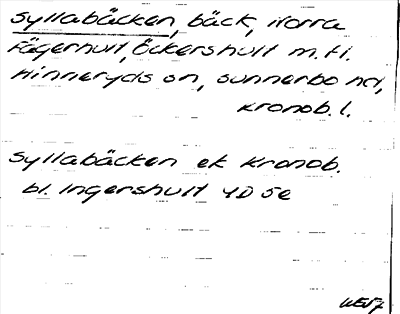 Syllabäcken, bäck, Norra
Fägerhult, Öckershult m.fl.
Hinneryds sn, Sunnerbo hd,
Kronob. l.
Syllabäcken ek Kronob.
bl. Ingershult 4D 5e